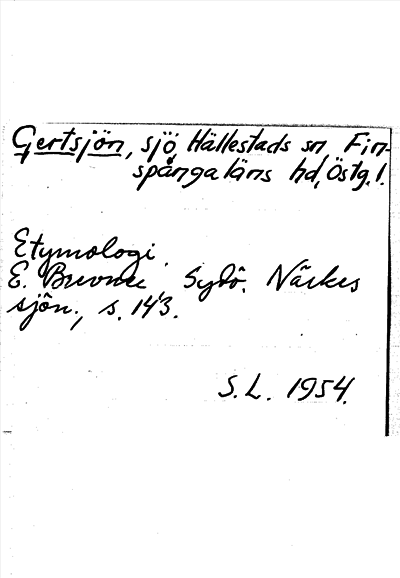 Gertsjön, sjö, Hällestads sn, Fin-
spångaläns hd, Östg.l.
Etymologi.
E. Brevner, Sydö. Närkes
sjön., s. 143.
S.L. 1954.